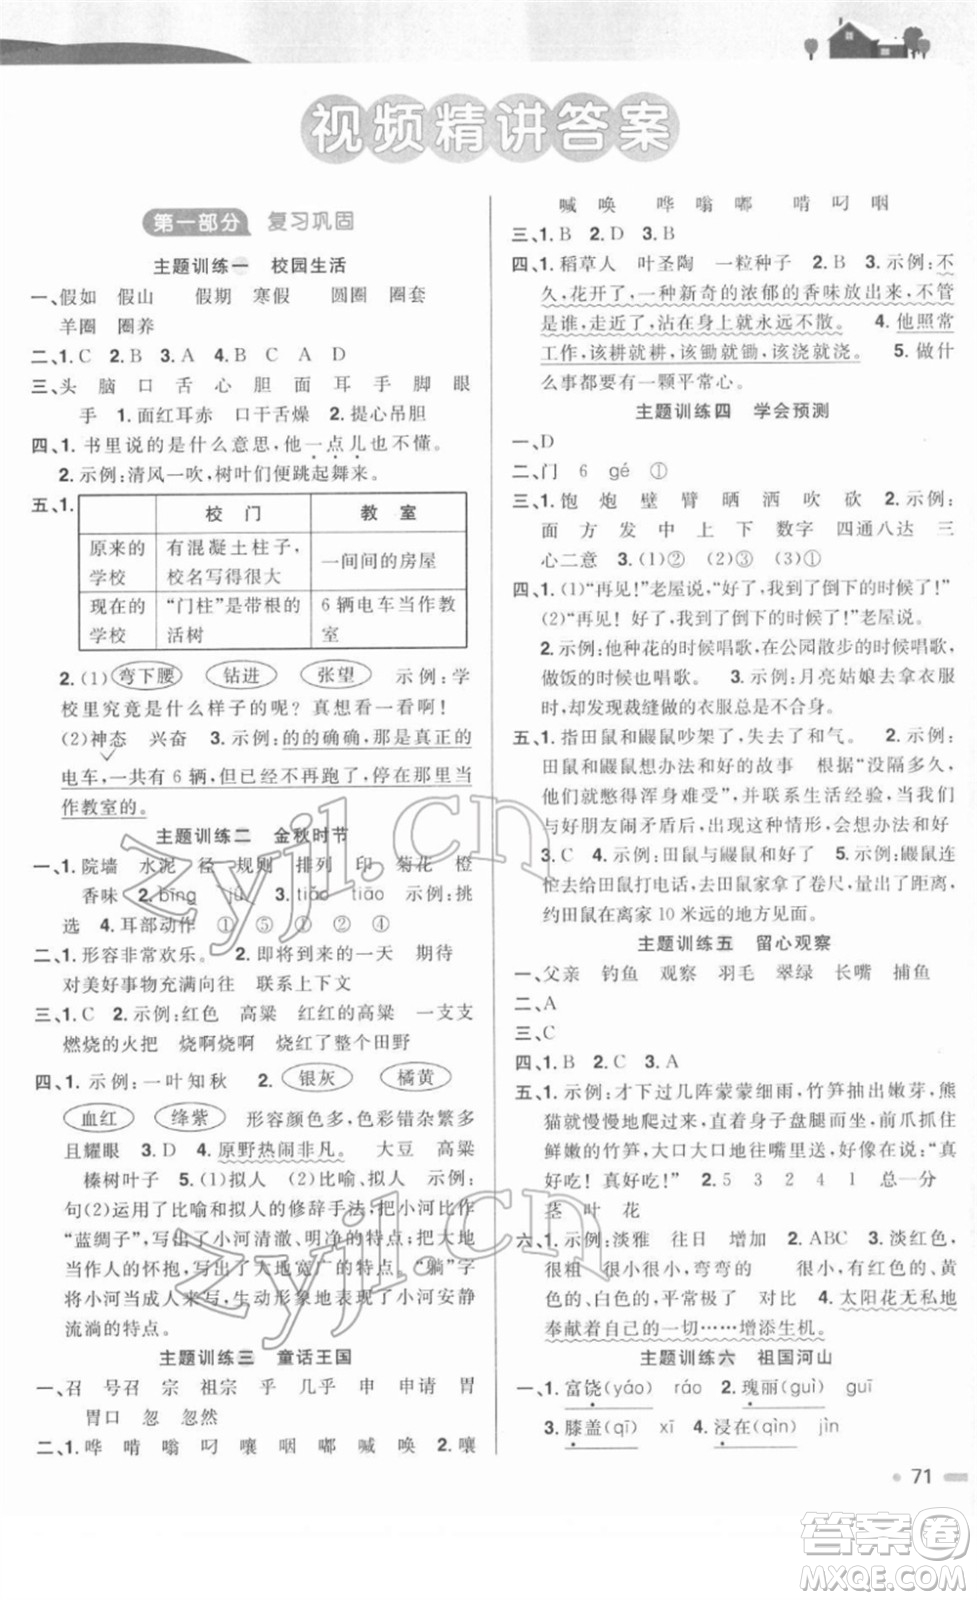 视频精讲答案
第一部分 复习巩固
主题训练一 校园生活
一、假如 假山 假期 寒假 圆圈 圈套
羊圈 圈养
二、1. C 2. B 3. A 4. B C A D
三、头 脑 口 舌 心 胆 面 耳 手 脚 眼
手 1. 面红耳赤 口干舌燥 2. 提心吊胆
四、1. 书里说的是什么意思,他一点儿也不懂。
2. 示例:清风一吹,树叶们便跳起舞来。
五、1.
校 门 教 室
原来的学校 有混凝土柱子,校名写得很大 一间间的房屋
现在的学校 “门柱”是带根的活树 6 辆电车当作教室
2. (1) 弯下腰 钻进 张望 示例:学
校里究竟是什么样子的呢? 真想看一看啊!
(2)神态 兴奋 3. 示例:的的确确,那是真正的
电车,一共有 6 辆,但已经不再跑了,停在那里当
作教室的。
主题训练二 金秋时节
一、1. 院墙 水泥 径 规则 排列 印 菊花 橙
香味 2. bīng jù 3. tiáo tiāo 示例:挑
选 4. 耳部动作 ① ⑤ ② ④
二、1. 形容非常欢乐。 2. 即将来临的一天 期待
对美好事物充满向往 联系上下文
三、1. C 2. 示例:红色 高粱 红红的高粱 一支支
燃烧的火把 烧啊烧啊 烧红了整个田野
四、1. 示例:一叶知秋 2. 银灰 橘黄
血红 绛紫 形容颜色多,色彩错杂繁多
且耀眼 3. D 4. 原野热闹非凡。 大豆 高粱
榛树叶子 5. (1)拟人 (2)比喻、拟人 示例:
句(2)运用了比喻和拟人的修辞手法,把小河比作
“蓝绸子”,写出了小河清澈、明净的特点;把大地
当作人的怀抱,写出了大地宽广的特点。“躺”字
将小河当成人来写,生动形象地表现了小河安静
流淌的特点。
主题训练三 童话王国
一、召 号召 宗 祖宗 乎 几乎 申 申请 胃
胃口 忽 忽然
二、1. 哗 啃 嗡 叼 嚷 咽 嘟 喊 唤 2. 嚷
喊 唤 哗 嗡 嘟 啃 叼 咽
三、1. B 2. D 3. B
四、1. 稻草人 叶圣陶 一粒种子 2. B 3. 示例:不
久,花开了,一种新奇的浓郁的香味放出来,不管
是谁,走近了,沾在身上就永远不散。 4. 他照常
工作,该耕就耕,该锄就锄,该浇就浇。 5. 做什
么事都要有一颗平常心。
主题训练四 学会预测
一、D
二、门 6 gé ①
三、1. 饱 炮 壁 臂 晒 洒 吹 砍 2. 示例:
面 方 发 中 上 下 数字 四通八达 三
心二意 3. (1)② (2)③ (3)①
四、1. (1)“再见!”老屋说,“好了,我到了倒下的时候了!”
(2)“再见! 好了,我到了倒下的时候了!”老屋说。
2. 示例:他种花的时候唱歌,在公园散步的时候唱歌,
做饭的时候也唱歌。 3. 示例:月亮姑娘去拿衣服
时,却发现裁缝做的衣服总是不合身。
五、1. 指田鼠和鼹鼠吵架了,失去了和气。 2. 示例:
田鼠和鼹鼠想办法和好的故事 根据“没隔多久,
他们就憋得浑身难受”,并联系生活经验,在与
与好朋友闹矛盾后,会出现这种情形,会想办法和好
3. C 4. 示例:田鼠与鼹鼠和好 5. 示例:鼹鼠连
忙给田鼠打电话,去田鼠家拿了卷尺,量出距离,
约田鼠在离家 10 米远的地方见面。
主题训练五 留心观察
一、父亲 钓鱼 观察 羽毛 翠绿 长嘴 捕鱼
二、A
三、C
四、1. B 2. C 3. A
五、1. 示例:才下过几阵蒙蒙细雨,竹笋抽出嫩芽,熊
猫就慢慢地爬过来,直着身子盘腿而坐,前爪抓住
鲜嫩的竹笋,大口大口地往嘴里送,好像在说:“真
好吃! 真好吃!” 2. 5 3 2 4 1 总—分
茎 叶 花
六、1. 示例:淡雅 往日 增加 2. ABC 3. 淡红色的,
很粗 很小的、弯弯的 很小,有红色的、黄
色的、白色的,平常极了 对比 4. 太阳花无私地
奉献着自己的一切……增添生机。
主题训练六 祖国河山
一、1. 富饶(yáo) ráo 2. 瑰丽(guì) guī
3. 膝盖(qī) xī 4. 浸在(qìn) jìn
71
zyjl.cn
zyjl.cn
答案圈
MXQE.COM